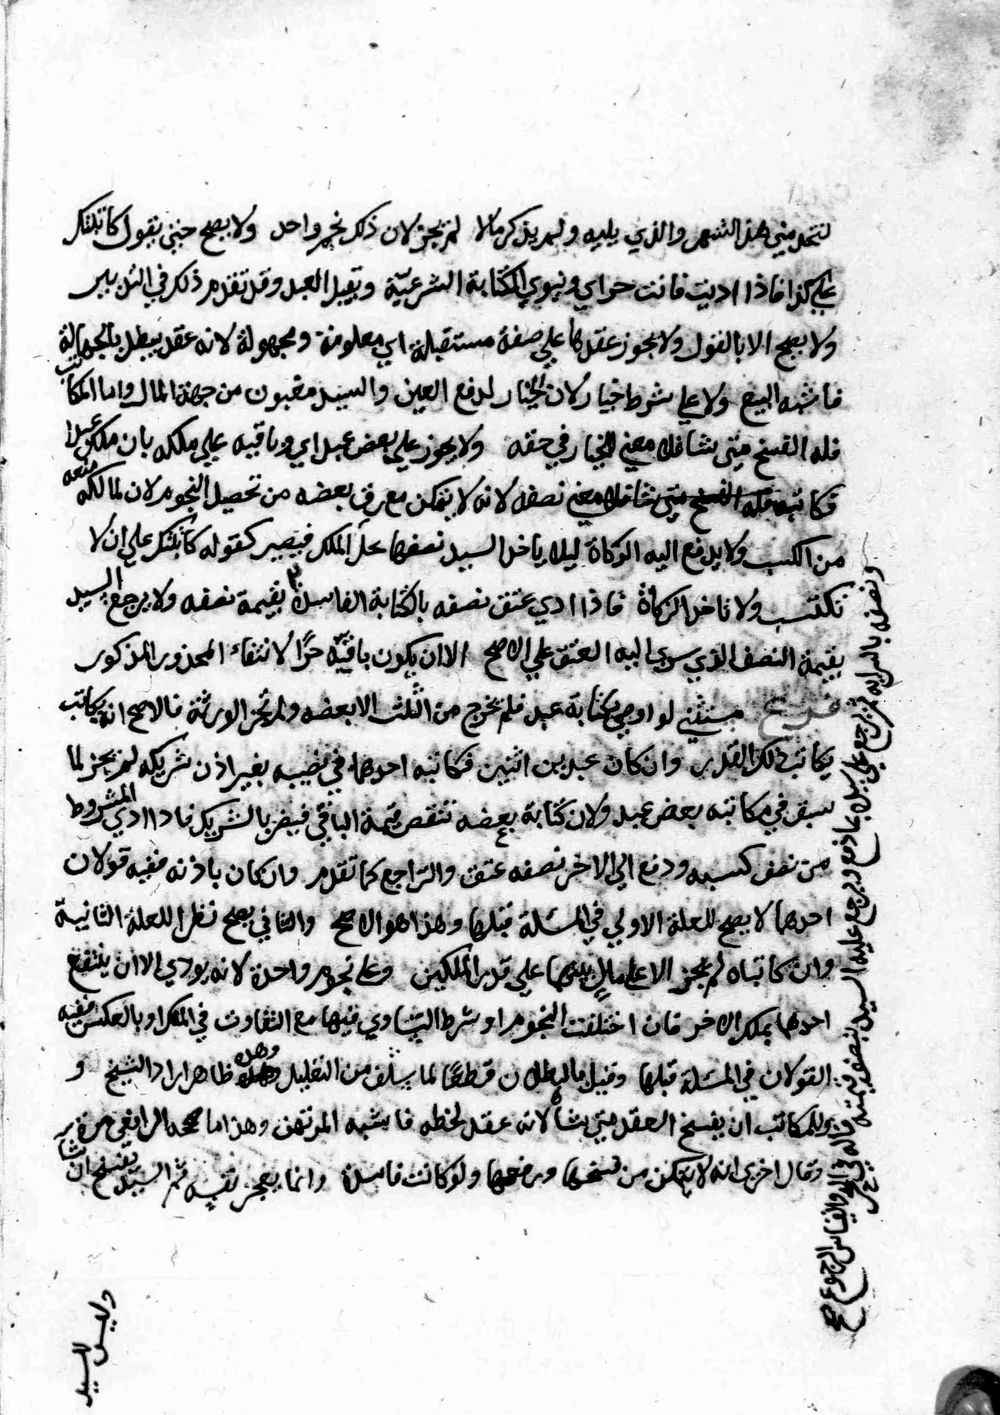 لتخدمني هذا الشهر والذي يليه ولم يذكر مالا لم يجز لان ذلك نجم واحد ولا يصح حتى يقول كاتبتك
على كذا فاذا اديت فانت حر اي وينوي الكتابة الشرعية ويقبل العبد وقد تقدم ذكر في التدبير
ولا يصح الا بالقول ولا يجوز عقدها علي صفة مستقبلة اي معلومة ومجهولة لانه عقد يبطل بالجهالة
فاشبه البيع ولا علي شرط خيار لان الخيار لدفع الغبن والسيد مغبون من جهة المال واما المكاتب
فله الفسخ متى شا فلا معني للخيار في حقه ولا يجوز علي بعض عبد اي وباقيه علي ملكه بان ملك عبدا
فكاتب نصفه لانه لا يتمكن معرق بعضه من تحصيل النجوم لان لمالكه منعه
من الكسب ولا يدفع اليه الزكاة ليلا ياخذ السيد نصفها بحق الملك فيصير كقوله كاتبتك علي ان لا
تكتسب ولا تاخذ الزكاة فاذا ادي عتق نصفه بالكتابة الفاسدة بقيمة نصفه ولا يرجع السيد
بقيمة النصف الذي سري اليه العتق علي الاصح الا ان يكون باقيه حرًا لانتفاء المحذور المذكور
مستثني لو اوصي بكتابة عبد فلم يخرج من الثلث الا بعضه ولم تجز الورثة فالاصح انه يكاتب
يكاتب ذلك القدر وان كان عبد بين اثنين فكاتبه احدهما في نصيبه بغير اذن شريكه لم يجز لما
سبق في مكاتبه بعض عبد ولان كتابة بعضه تنقص قيمة الباقي فيضر بالشريك فاذا ادي المشروط
من نصف كسبه ودفع الي الاخر نصفه عتق والتراجع كما تقدم وان كان باذنه ففيه قولان
احدهما لا يصح للعلة الاولي في المسئلة قبلها وهذا هو الاصح والثاني يصح نظرا للعلة الثانية
وان كاتباه لم يجز الا علي مال بينهما علي قدر الملكين وعلي نجوم واحدة لانه يودي الا ان ينتفع
احدهما بملك الاخر فان اختلفت النجوم او شرط التساوي فيها مع التفاوت في الملك او بالعكس ففيه
القولان في المسئلة قبلها وقيل بالبطلان قطعا لما سلف من التعليل وهذه ظاهر ايراد الشيخ و
وللمكاتب ان يفسخ العقد متى شا لانه عقد لحظه فاشبه المرتهن وهذا ما صححه الرافعي
وقال اخرى انه لا يتمكن من فسخها ورفعها ولو كانت فاسدة وانما يعجز نفسه ثم السيد يفسخ ان شا
ونصفه بالسراية ثم يرجع علي السيد بما دفع ويرجع عليه السيد بنصف قيمته
والقياس الرجوع صح
وليس للسيد